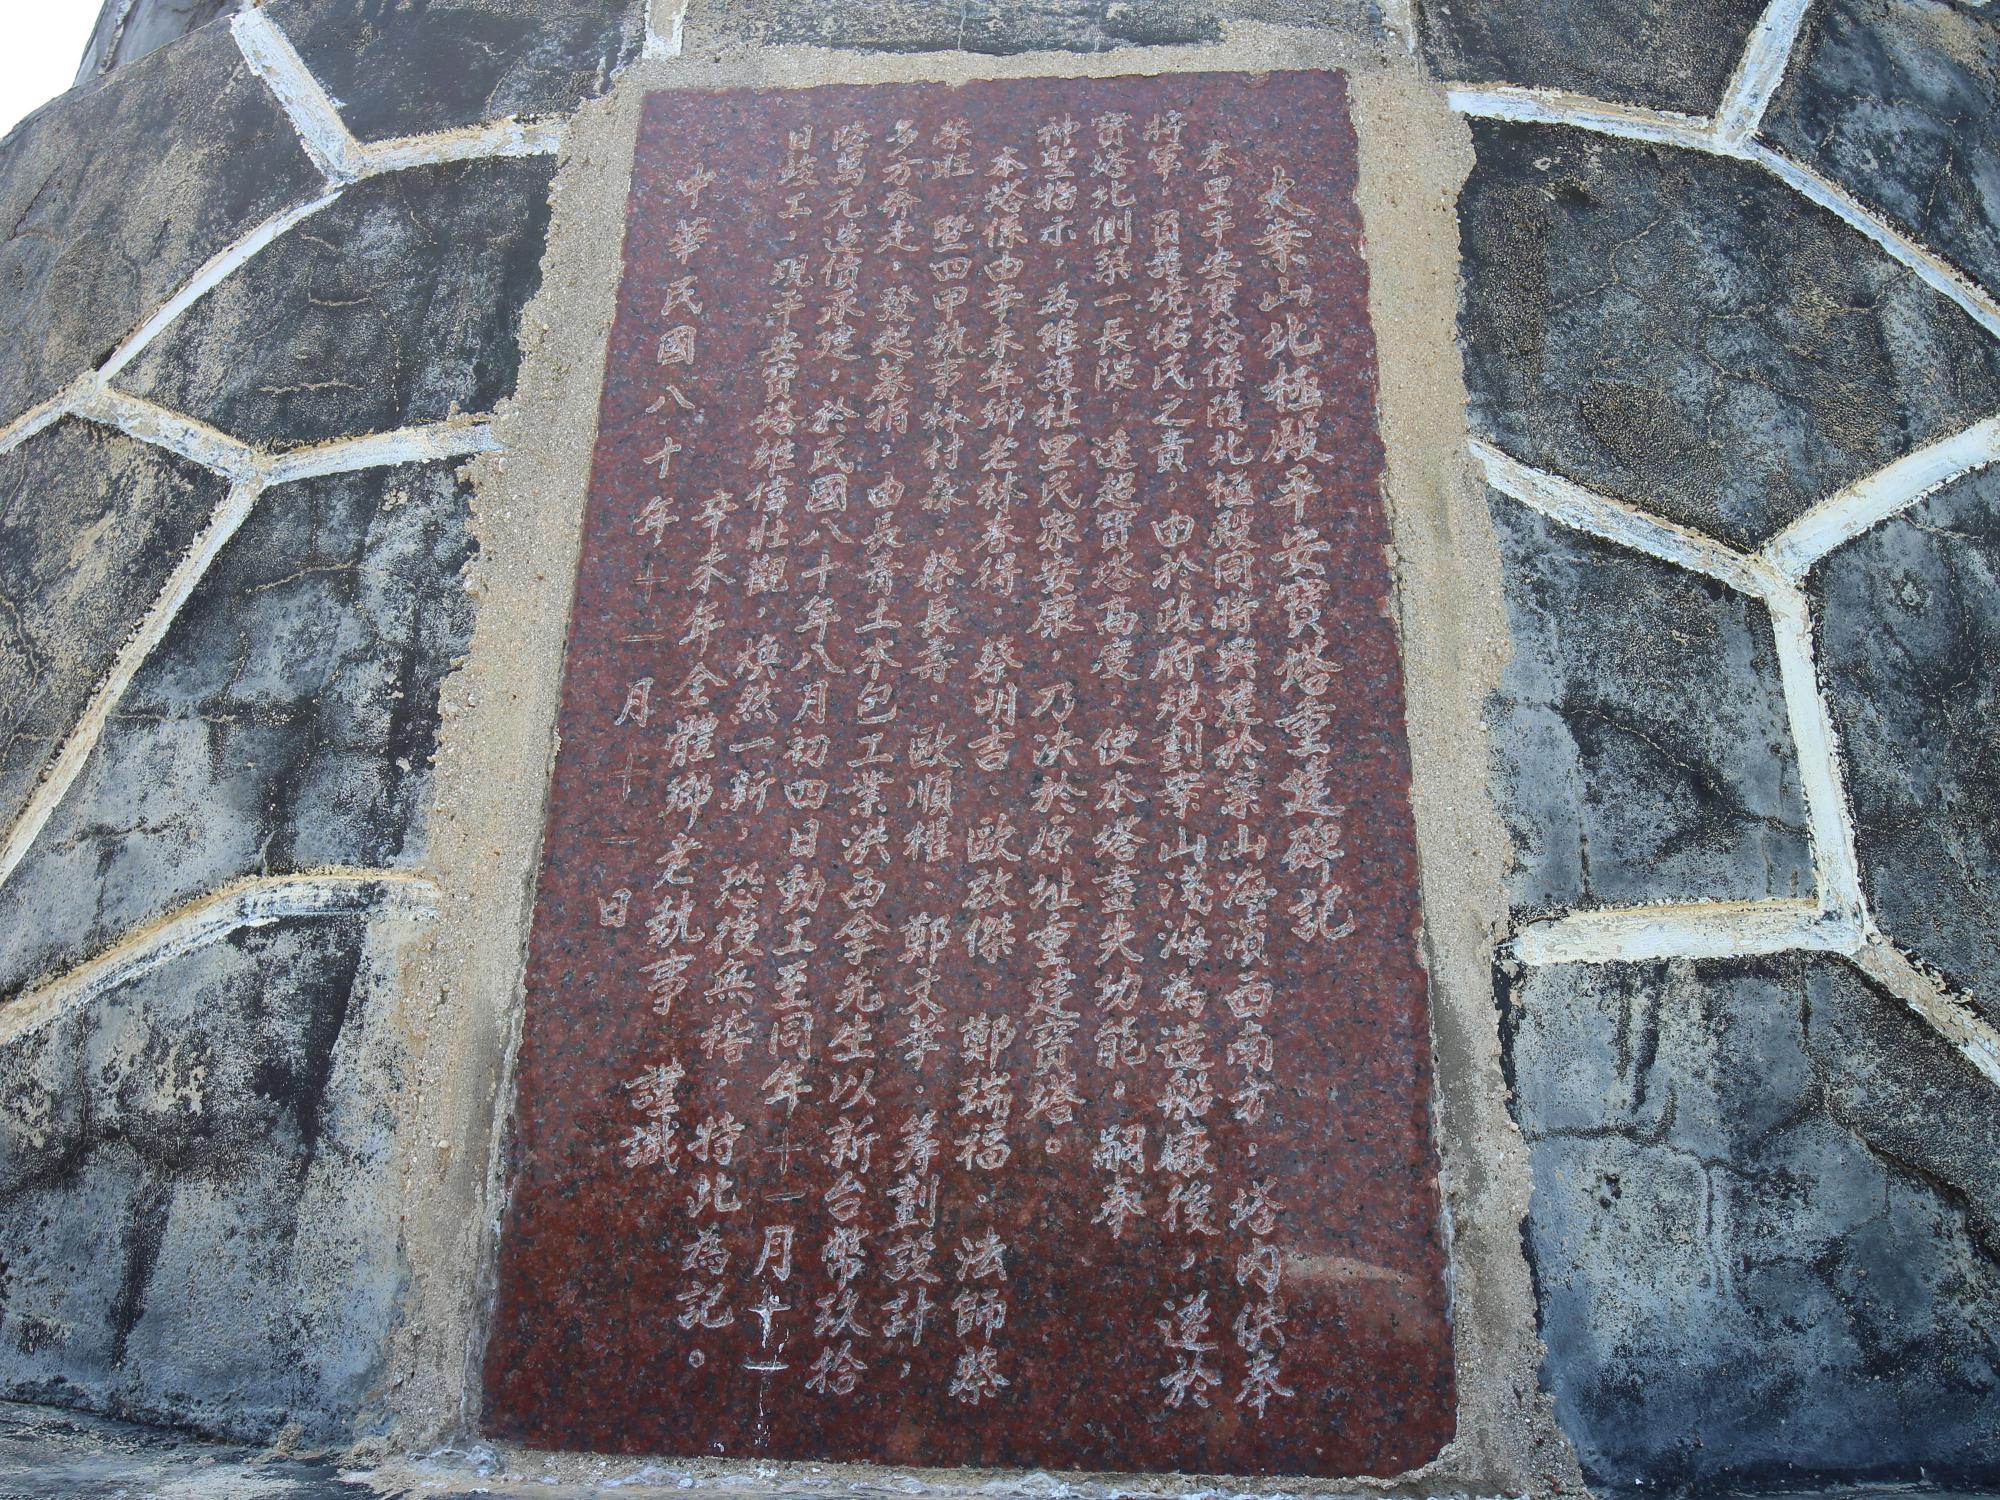 大案山北極殿平安寶塔重建碑記
本里平安寶塔係隨北極殿同時興建於案山海濱西南方，塔內供奉
將軍，負護境佑民之責，由於政府規劃案山淺海為造船廠後，遂於
寶塔北側築一長隄，遠超寶塔高度，使本塔盡失功能，嗣奉
神聖指示，為維護社里民眾安康，乃決於原址重建寶塔。
本塔係由辛未年鄉老林春得、蔡明吉、歐啟傑、鄭瑞福、法師蔡
榮旺、暨四甲執事林村森、蔡長壽、歐順權、鄭文華、籌劃設計，
多方奔走，發起募捐，由長青土木包工業洪西拿先生以新台幣玖拾
陸萬元造價承建，於民國八十年八月初四日動工至同年十一月十一
日竣工，現平安寶塔雄偉壯觀，煥然一新，恐後無稽，特此為記。
辛未年全體鄉老執事　謹識
中華民國八十年十二月十二日